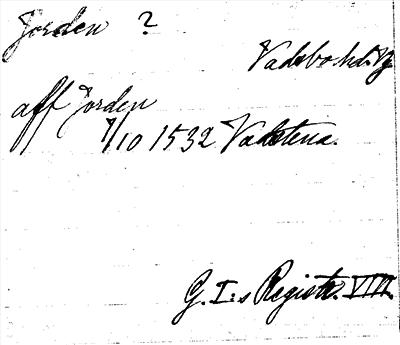 Jorden ?
Vadsbo hd. Vg
aff Jorden
7/10 1532 Vadstena.
G. I:s Registr. VIII.